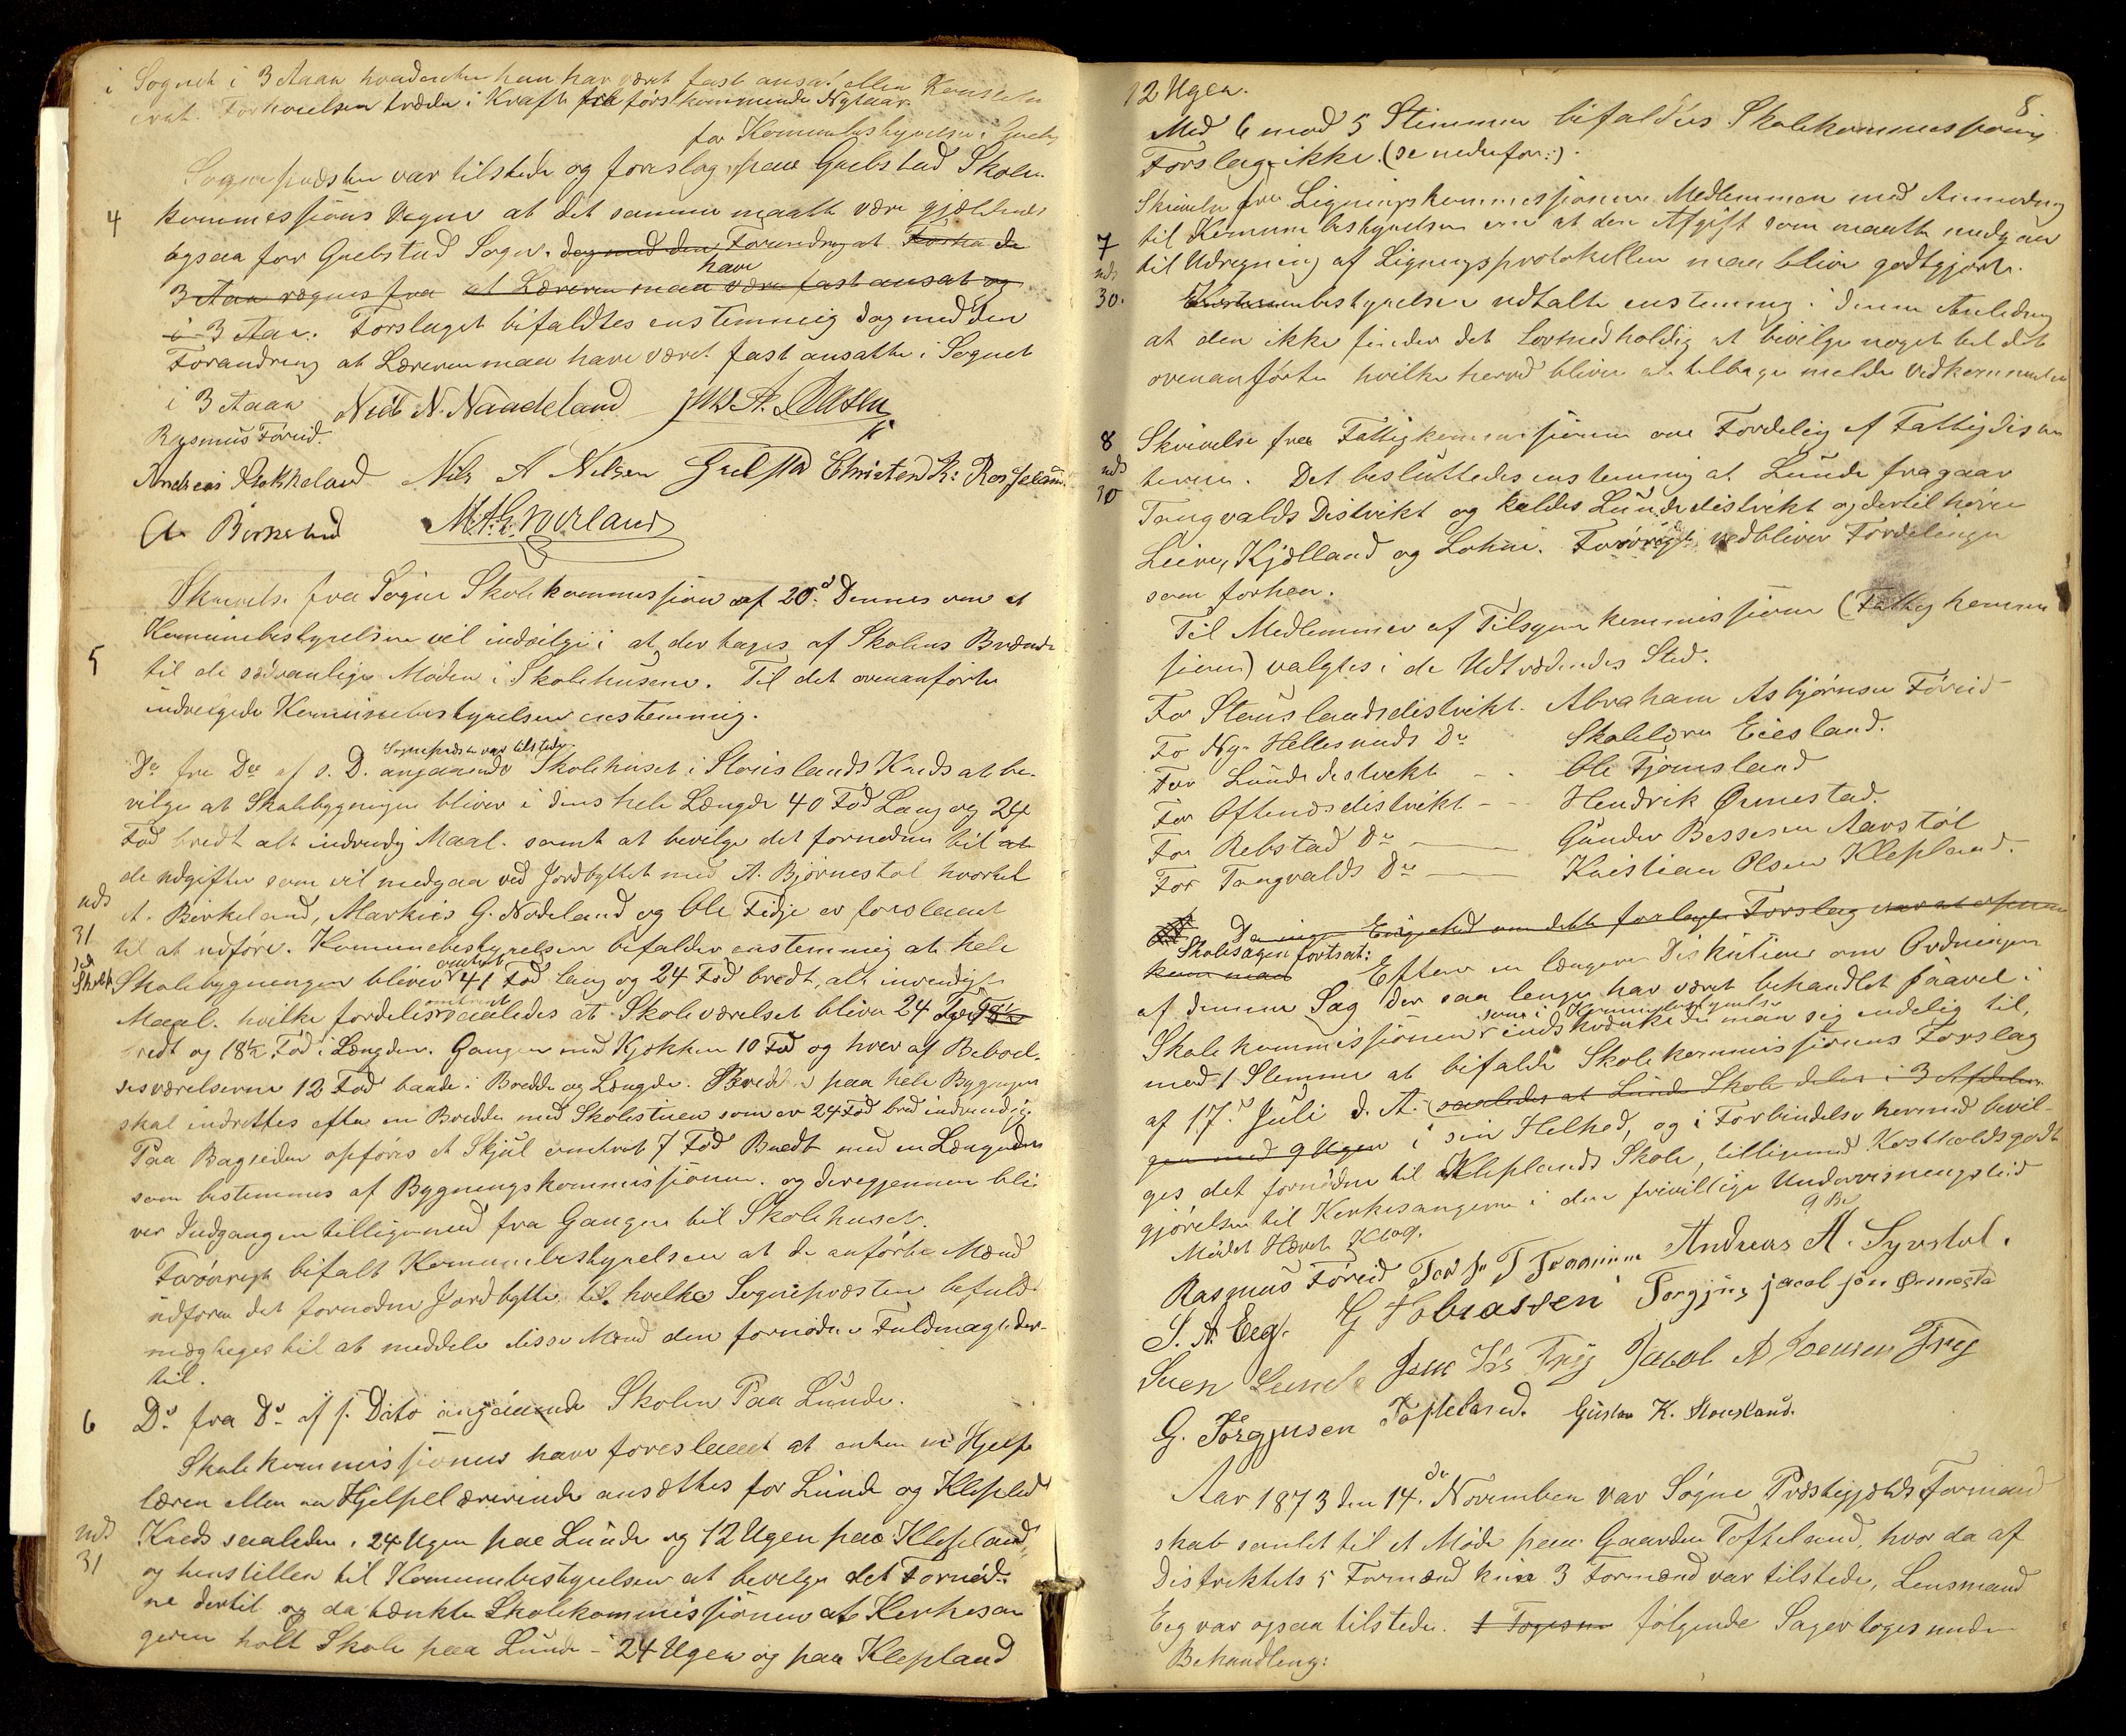 i Sognet i 3 Aaar hvadenten han har været fast ansat eller Konstitu
erat. Forhøielsen træder i Kraft fra førstkommende Nytaar.
for Kommunebestyrelsen i Greb.
Sognepræsten var tilstede og foreslog paa Grebstad Skole-
4
kommissions Vegne at det samme maatte være gjældende
ogsaa for Grebstad Sogn. dog med den Forandring at de
3 Aar regnes fra at Læreren maa være fast ansat og
have
i 3 Aar. Forslaget bifaldtes enstemmig dog med den
Forandring at Læreren maa have været fast ansatte i Sognet
i 3 Aaar Niels N. Naadeland
Rasmus Føreid.
Andreas Stokkeland Nils A Nilsen Christen K: Rosseland.
A. Birkeland
Skrivelse fra Søgne Skolekommission af 20d Dennes om at
Kommunebestyrelsen vil indvilge i at der tages af Skolens Brænde
5
til de sædvanlige Møder i Skolehusene. Til det ovenanførte
indvilgede Kommunebestyrelsen enstemmig.
Sognepræsten var tilstede.
Do fra Do af s. D. angaaende Skolehuset i Stauslands Kreds at be-
vilge at Skolebygningen bliver i dens hele Længde 40 Fod Lang og 24
Fod bredt alt indvendig Maal. samt at bevilge det fornødne til at
de udgifter som vil medgaa ved Jordbyttet med A. Bjørnestøl hvortil
uds
A. Birkeland, Markus G. Nodeland og Ole Fidje er foreslaaet
31
til at udføre. Kommunebestyrelsen bifalder enstemmig at hele
omtrent
Skolebygningen bliver 41 Fod lang og 24 Fod bredt, alt invendigt
omtrent
Maal. hvilke fordeles saaledes at Skoleværelset bliver 24 Fod
bredt og 18½ Fod i Længden. Gangen med Kjøkken 10 Fod og hver af Beboel-
sesværelserne 12 Fod baade i Bredde og Længde. Bredden paa hele Bygningen
skal indrettes efter en Bredde med Skolestuen som er 24 Fod bred indvendig.
Paa Bagsiden opføres et Skjul omtrent 7 Fod Bredt med en Længde
som bestemmes af Bygningskommissionen. og derigjennem bli-
ver Indgangen tilligemed fra Gangen til Skolehuset.
Forøvrigt bifalt Kommunebestyrelsen at de anførte Mænd
udfører det fornødne Jordbytte, til hvilke Sognepræsten befuld-
mægtiges til at meddele disse Mænd den fornødne Fuldmagt der-
til.
6
Do fra Do af s. Dato angaaende Skolen Paa Lunde.
Skolekommissionen have foreslaaet at enten en Hjelpe
lærer eller en Hjelpelærerinde ansættes for Lunde og Klepland
uds
Kreds saaledes, 24 Uger paa Lunde og 12 Uger paa Klepland,
31
og henstiller til Kommunebestyrelsen at bevilge det Fornød-
ne dertil og da tænkte Skolekommissionen at Kerkesan
geren holt Skole paa Lunde i 24 Uger og paa Klepland
8
12 Uger.
Med 6 mod 5 Stimmer bifaldtes Skolekommissionens
Forslag ikke. (se nedenfor:).
Skrivelse fra Ligningskommissionens Medlemmer med Anmodning
7
til Kommunebestyrelsen om at den Afgift som maatte medgaa
uds
til Udregning af Ligningsprotokollen maa blive godtgjort.
30.
Kommunebestyrelsen udtalte enstemmig i denne Anledning
at den ikke finder det Lovmedholdig at bevilge noget til det
ovenanførte hvilke herved bliver at tilbage melde Vedkommende
8
Skrivelse fra Fattigkommissionen om Fordeling af Fattigdistrik
uds
terne. Det besluttedes enstemmig at Lunde fragaar
30
Tangvalds Distrikt og kaldes Lundedistrikt og dertil hører
Leire, Kjølland og Lohne. Forøvrigt vedbliver Fordelingen
som forhen.
Til Medlemmer af Tilsyns kommissionen (Fattigkommis
sionen) valgtes i de Udtrædendes Sted.
For Stauslandsdistrikt. Abraham Asbjørnsen Føreid
For Ny-Hellesunds Do Skolelærer Eiesland.
For Lunde distrikt - - Ole Tjomsland
For Oftenæsdistrikt - - Hendrik Ørnestad.
For Rebstad Do — Gunder Bessesen Aarstøl
For Tangvalds Do — Kristian Olsen Klepland.
Da ingen Enighed om dette forlagte Forslag var at opnaa
Skolesagen fortsat:
Efter en længere Diskution om Ordningen
af denne Sag der saa længe har været behandlet saavel i
som i Kommunebestyrelse
Skolekommissionen indskrænkede man sig endelig til,
med 1 Stemme at bifalde Skolekommissionens Forslag
af 17de Juli d. A. (saaledes at Lunde Skole deles i 3 Afdelin-
ger med 9 Uger i sin Helhed, og i Forbindelse hermed bevil-
ges det fornødne til Kleplands Skole, tilligemed Kostholdsgodt
gjørelsen til Kerkesangeren i den frivillige Undervisningstid
Mødet Hævet
Rasmus Føreid Andreas A. Syrstøl.
S. A. Eeg. G Tobiassen Torgjus jacobsøn Ørnestø
Sven Lunde Jacob A Joensen Trys
G. Törgjusen Tofteland. Gustav K. Stousland.
Aar 1873 den 14de November var Søgne Præstegjælds Formand
skab samlet til et Møde paa Gaarden Tofteland, hvor da af
Distriktets 5 Formænd kun 3 Formænd var tilstede, Lensmand
Eeg var ogsaa tilstede. følgende Sager toges under
Behandling: